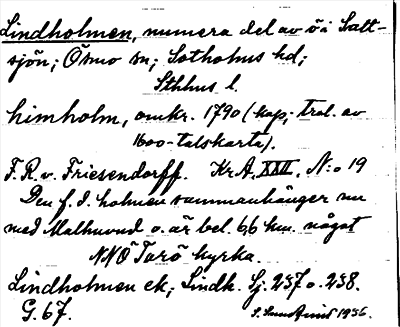 Lindholmen, numera del av ö i Salt-
sjön; Ösmo sn; Sotholms hd;
Sthlms l.
himholm, omkr. 1790 (kop; trol. av
1600-talskarta).
F. R. v. Friesendorff. KrA, XXII, N:o 19
Den f. d. holmen sammanhänger nu
med Malhuvud o. är bel. 6,6 km. något
NNÖ Torö kyrka.
Lindholmen ek; Lindh. Sj. 257 o. 258.
G. 67.
1936.